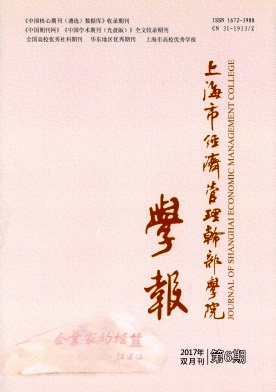 《中国核心期刊（遴选）数据库》收录期刊
《中国期刊网》《中国学术期刊（光盘版）》全文收录期刊
全国高校优秀社科期刊 华东地区优秀期刊 上海市高校优秀学报
ISSN 1672-3988
CN 31-1913/Z
上海市经济管理幹部學院
JOURNAL OF SHANGHAI ECONOMIC MANAGEMENT COLLEGE
學報
企业家的摇篮
2017年
双月刊
第6期